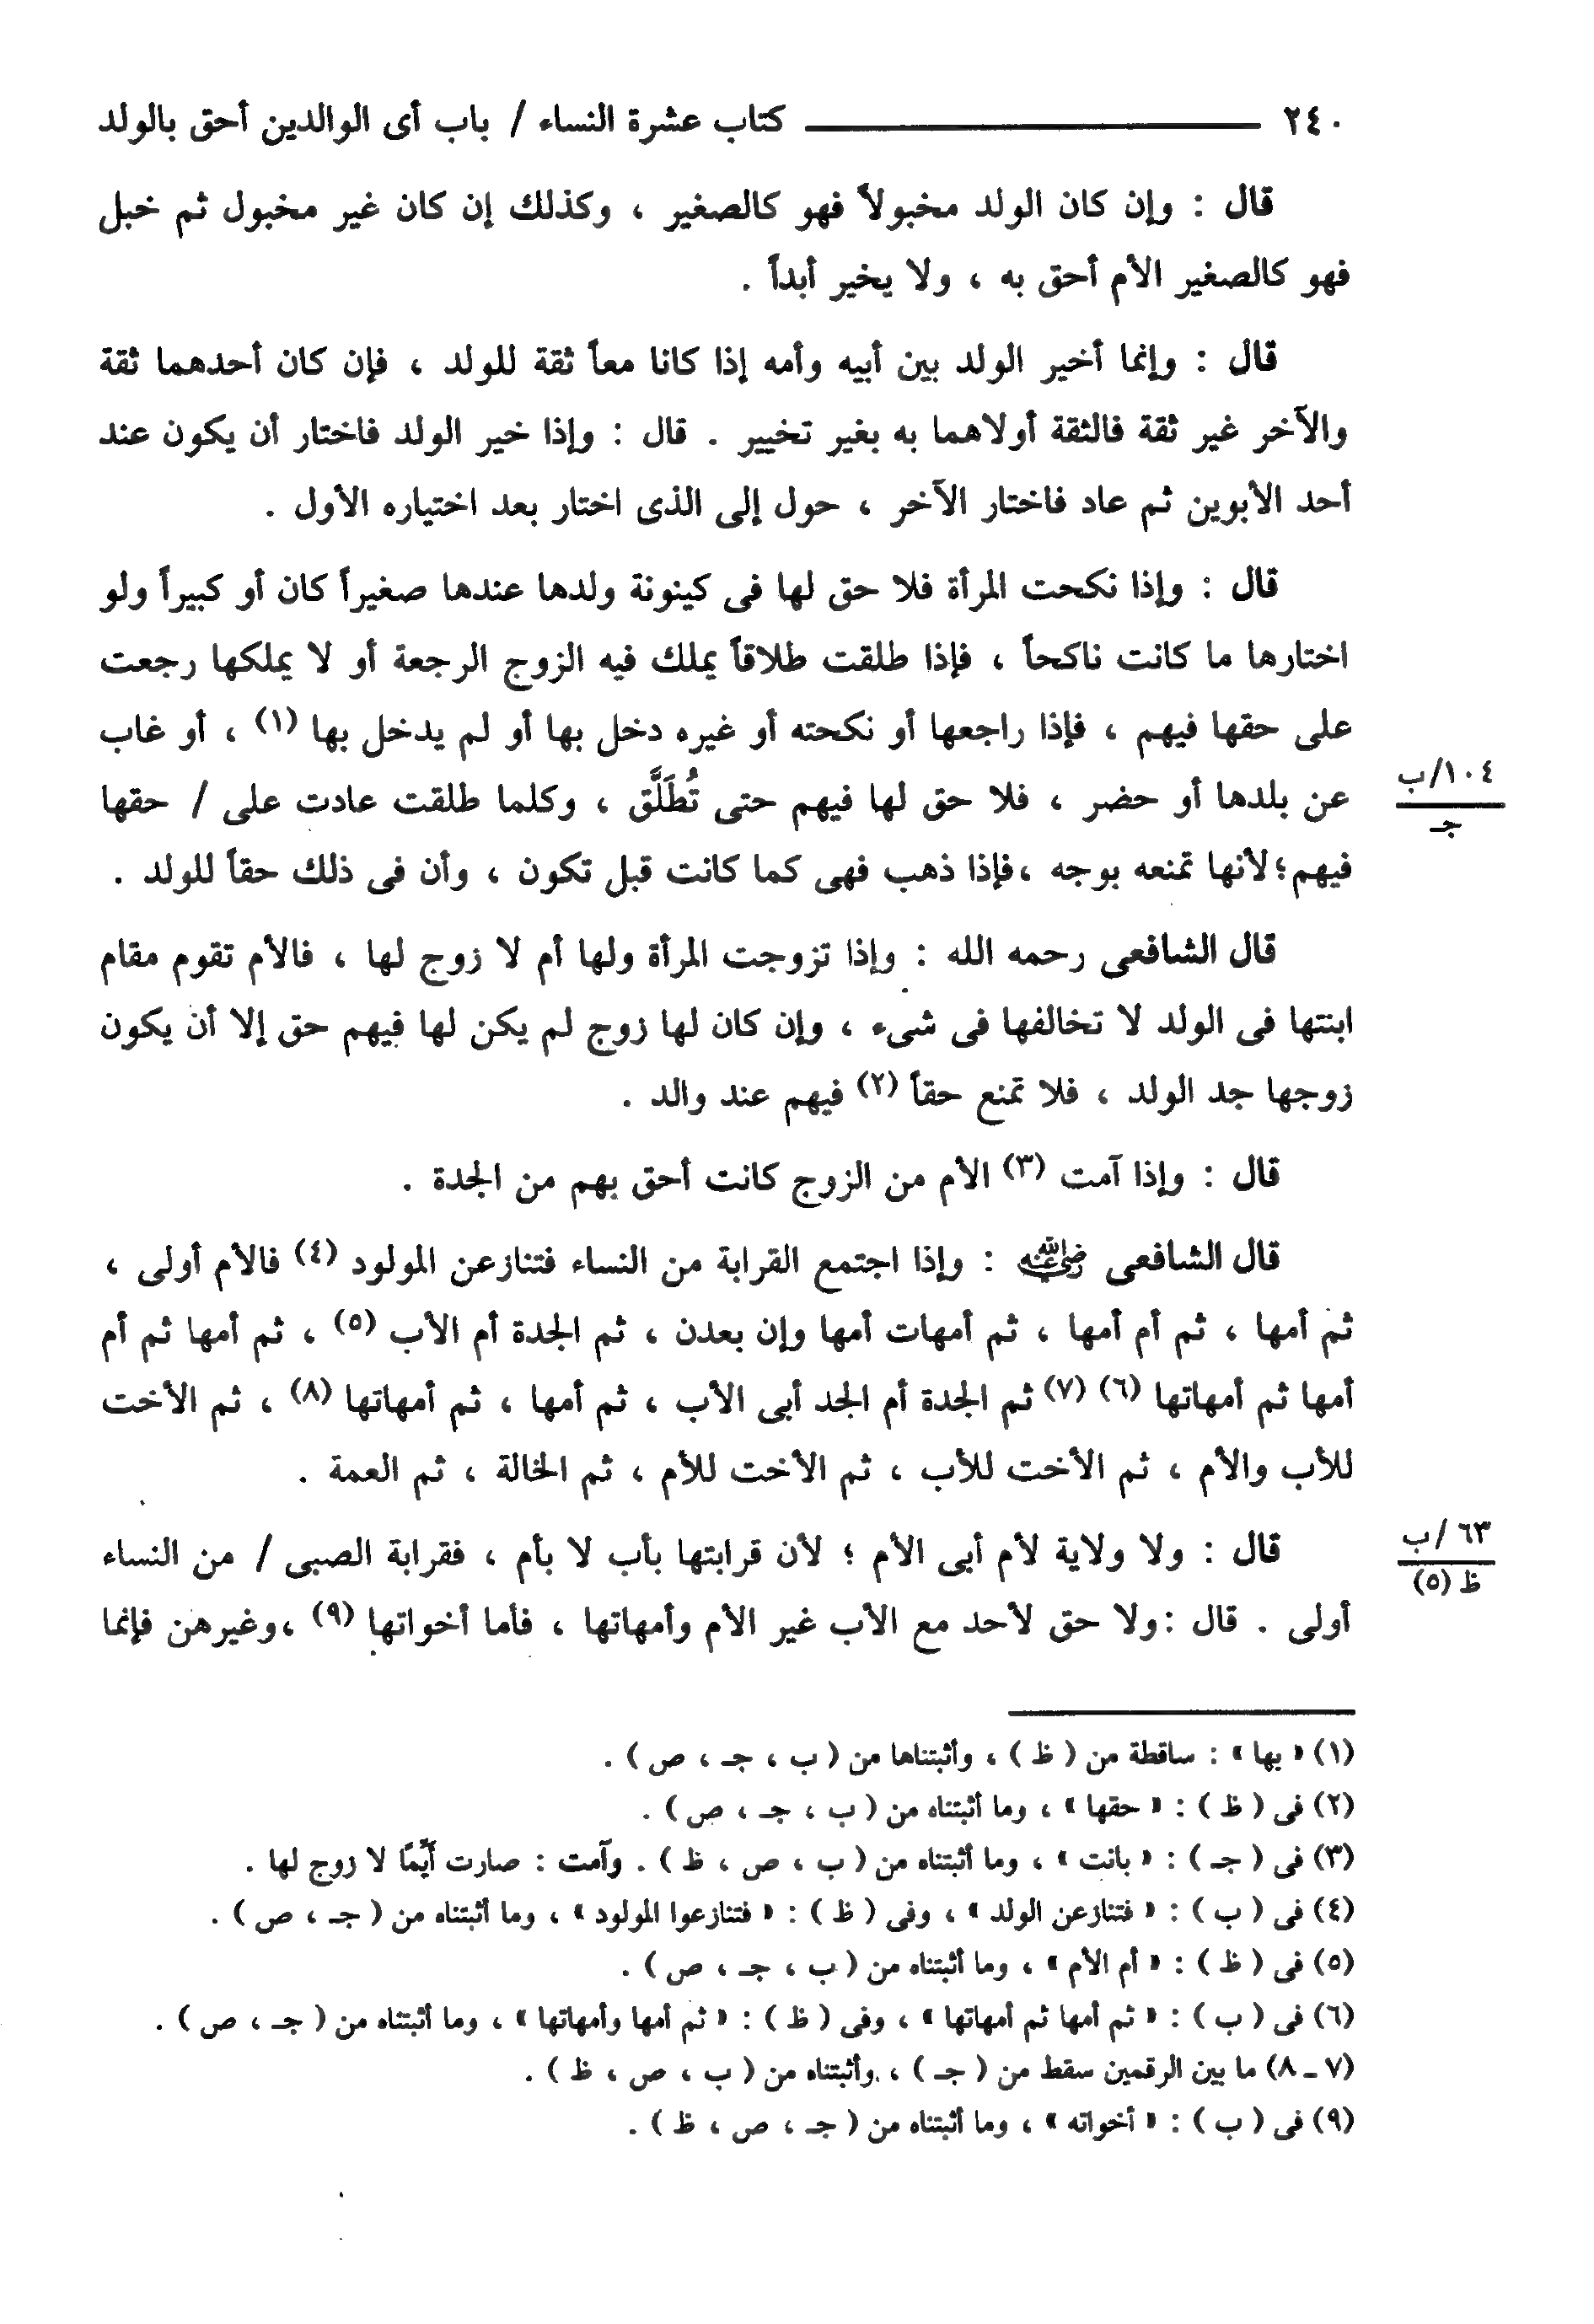 ٢٤٠ كتاب عشرة النساء / باب أى الوالدين أحق بالولد
قال : وإن كان الولد مخبولاً فهو كالصغير ، وكذلك إن كان غير مخبول ثم خبل
فهو كالصغير الأم أحق به ، ولا يخير أبداً .
قال : وإنما أخير الولد بين أبيه وأمه إذا كانا معاً ثقة للولد ، فإن كان أحدهما ثقة
والآخر غير ثقة فالثقة أولاهما به بغير تخيير . قال : وإذا خير الولد فاختار أن يكون عند
أحد الأبوين ثم عاد فاختار الآخر ، حول إلى الذى اختار بعد اختياره الأول .
قال : وإذا نكحت المرأة فلا حق لها فى كينونة ولدها عندها صغيراً كان أو كبيراً ولو
اختارها ما كانت ناكحاً ، فإذا طلقت طلاقاً يملك فيه الزوج الرجعة أو لا يملكها رجعت
على حقها فيهم ، فإذا راجعها أو نكحته أو غيره دخل بها أو لم يدخل بها (١) ، أو غاب
عن بلدها أو حضر ، فلا حق لها فيهم حتى تُطَلَّق ، وكلما طلقت عادت على / حقها
١٠٤/ب
جـ
فيهم؛ لأنها تمنعه بوجه ،فإذا ذهب فهى كما كانت قبل تكون ، وأن فى ذلك حقاً للولد .
قال الشافعى رحمه الله : وإذا تزوجت المرأة ولها أم لا زوج لها ، فالأم تقوم مقام
ابنتها فى الولد لا تخالفها فى شىء ، وإن كان لها زوج لم يكن لها فيهم حق إلا أن يكون
زوجها جد الولد ، فلا تمنع حقاً (٢) فيهم عند والد .
قال : وإذا آمت (٣) الأم من الزوج كانت أحق بهم من الجدة .
قال الشافعى رضي الله عنه : وإذا اجتمع القرابة من النساء فتنازعن المولود (٤) فالأم أولى ،
ثم أمها ، ثم أم أمها ، ثم أمهات أمها وإن بعدن ، ثم الجدة أم الأب (٥) ، ثم أمها ثم أم
أمها ثم أمهاتها (٦) (٧) ثم الجدة أم الجد أبى الأب ، ثم أمها ، ثم أمهاتها (٨) ، ثم الأخت
للأب والأم ، ثم الأخت للأب ، ثم الأخت للأم ، ثم الخالة ، ثم العمة .
قال : ولا ولاية لأم أبى الأم ؛ لأن قرابتها بأب لا بأم ، فقرابة الصبى / من النساء
٦٣ /ب
ظ (٥)
أولى . قال :ولا حق لأحد مع الأب غير الأم وأمهاتها ، فأما أخواتها (٩) ،وغيرهن فإنما
(١) « بها » : ساقطة من ( ظ ) ، وأثبتناها من ( ب ، جـ ، ص ) .
(٢) فى ( ظ ) : « حقها » ، وما أثبتناه من ( ب ، جـ ، ص ) .
(٣) فى ( جـ ) : « بانت » ، وما أثبتناه من ( ب ، ص ، ظ ) . وآمت : صارت أَيِّمًا لا زوج لها .
(٤) فى ( ب ) : « فتنازعن الولد » ، وفى ( ظ ) : « فتنازعوا المولود » ، وما أثبتناه من ( جـ ، ص ) .
(٥) فى ( ظ ) : « أم الأم » ، وما أثبتناه من ( ب ، جـ ، ص ) .
(٦) فى ( ب ) : « ثم أمها ثم أمهاتها » ، وفى ( ظ ) : « ثم أمها وأمهاتها » ، وما أثبتناه من ( جـ ، ص ) .
(٧ ـ ٨) ما بين الرقمين سقط من ( جـ ) ، وأثبتناه من ( ب ، ص ، ظ ) .
(٩) فى ( ب ) : « أخواته » ، وما أثبتناه من ( جـ ، ص ، ظ ) .